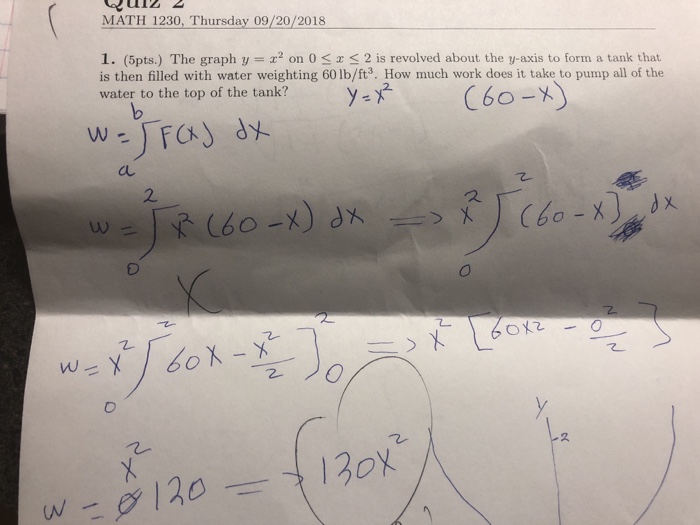 Quiz 2
MATH 1230, Thursday 09/20/2018
1. (5pts.) The graph y = x² on 0 ≤ x ≤ 2 is revolved about the y-axis to form a tank that
is then filled with water weighting 60 lb/ft³. How much work does it take to pump all of the
water to the top of the tank?
y=x² (60-x)
W = ∫ₐᵇ F(x) dx
W = ∫₀² x² (60-x) dx => x² ∫₀² (60-x) dx
X
W = x² ∫₀² 60x - x²/2 ]₀² => x² [60x2 - 0²/2]
x²
W = 120 => 130x²
y
2